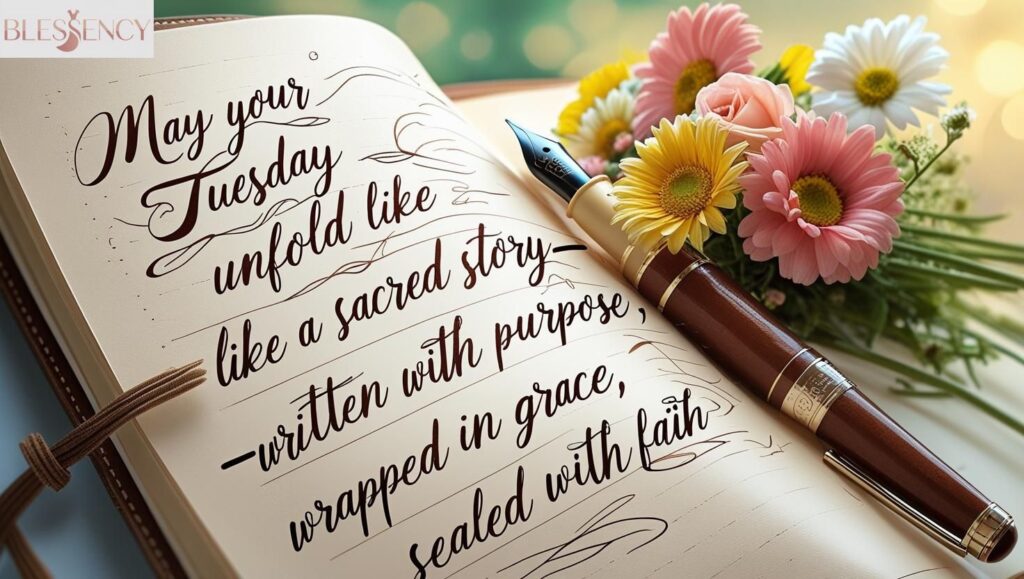 BLESSENCY
May your
Tuesday
unfold like
like a sacred story—
—written with purpose,
wrapped in grace,
sealed with faith